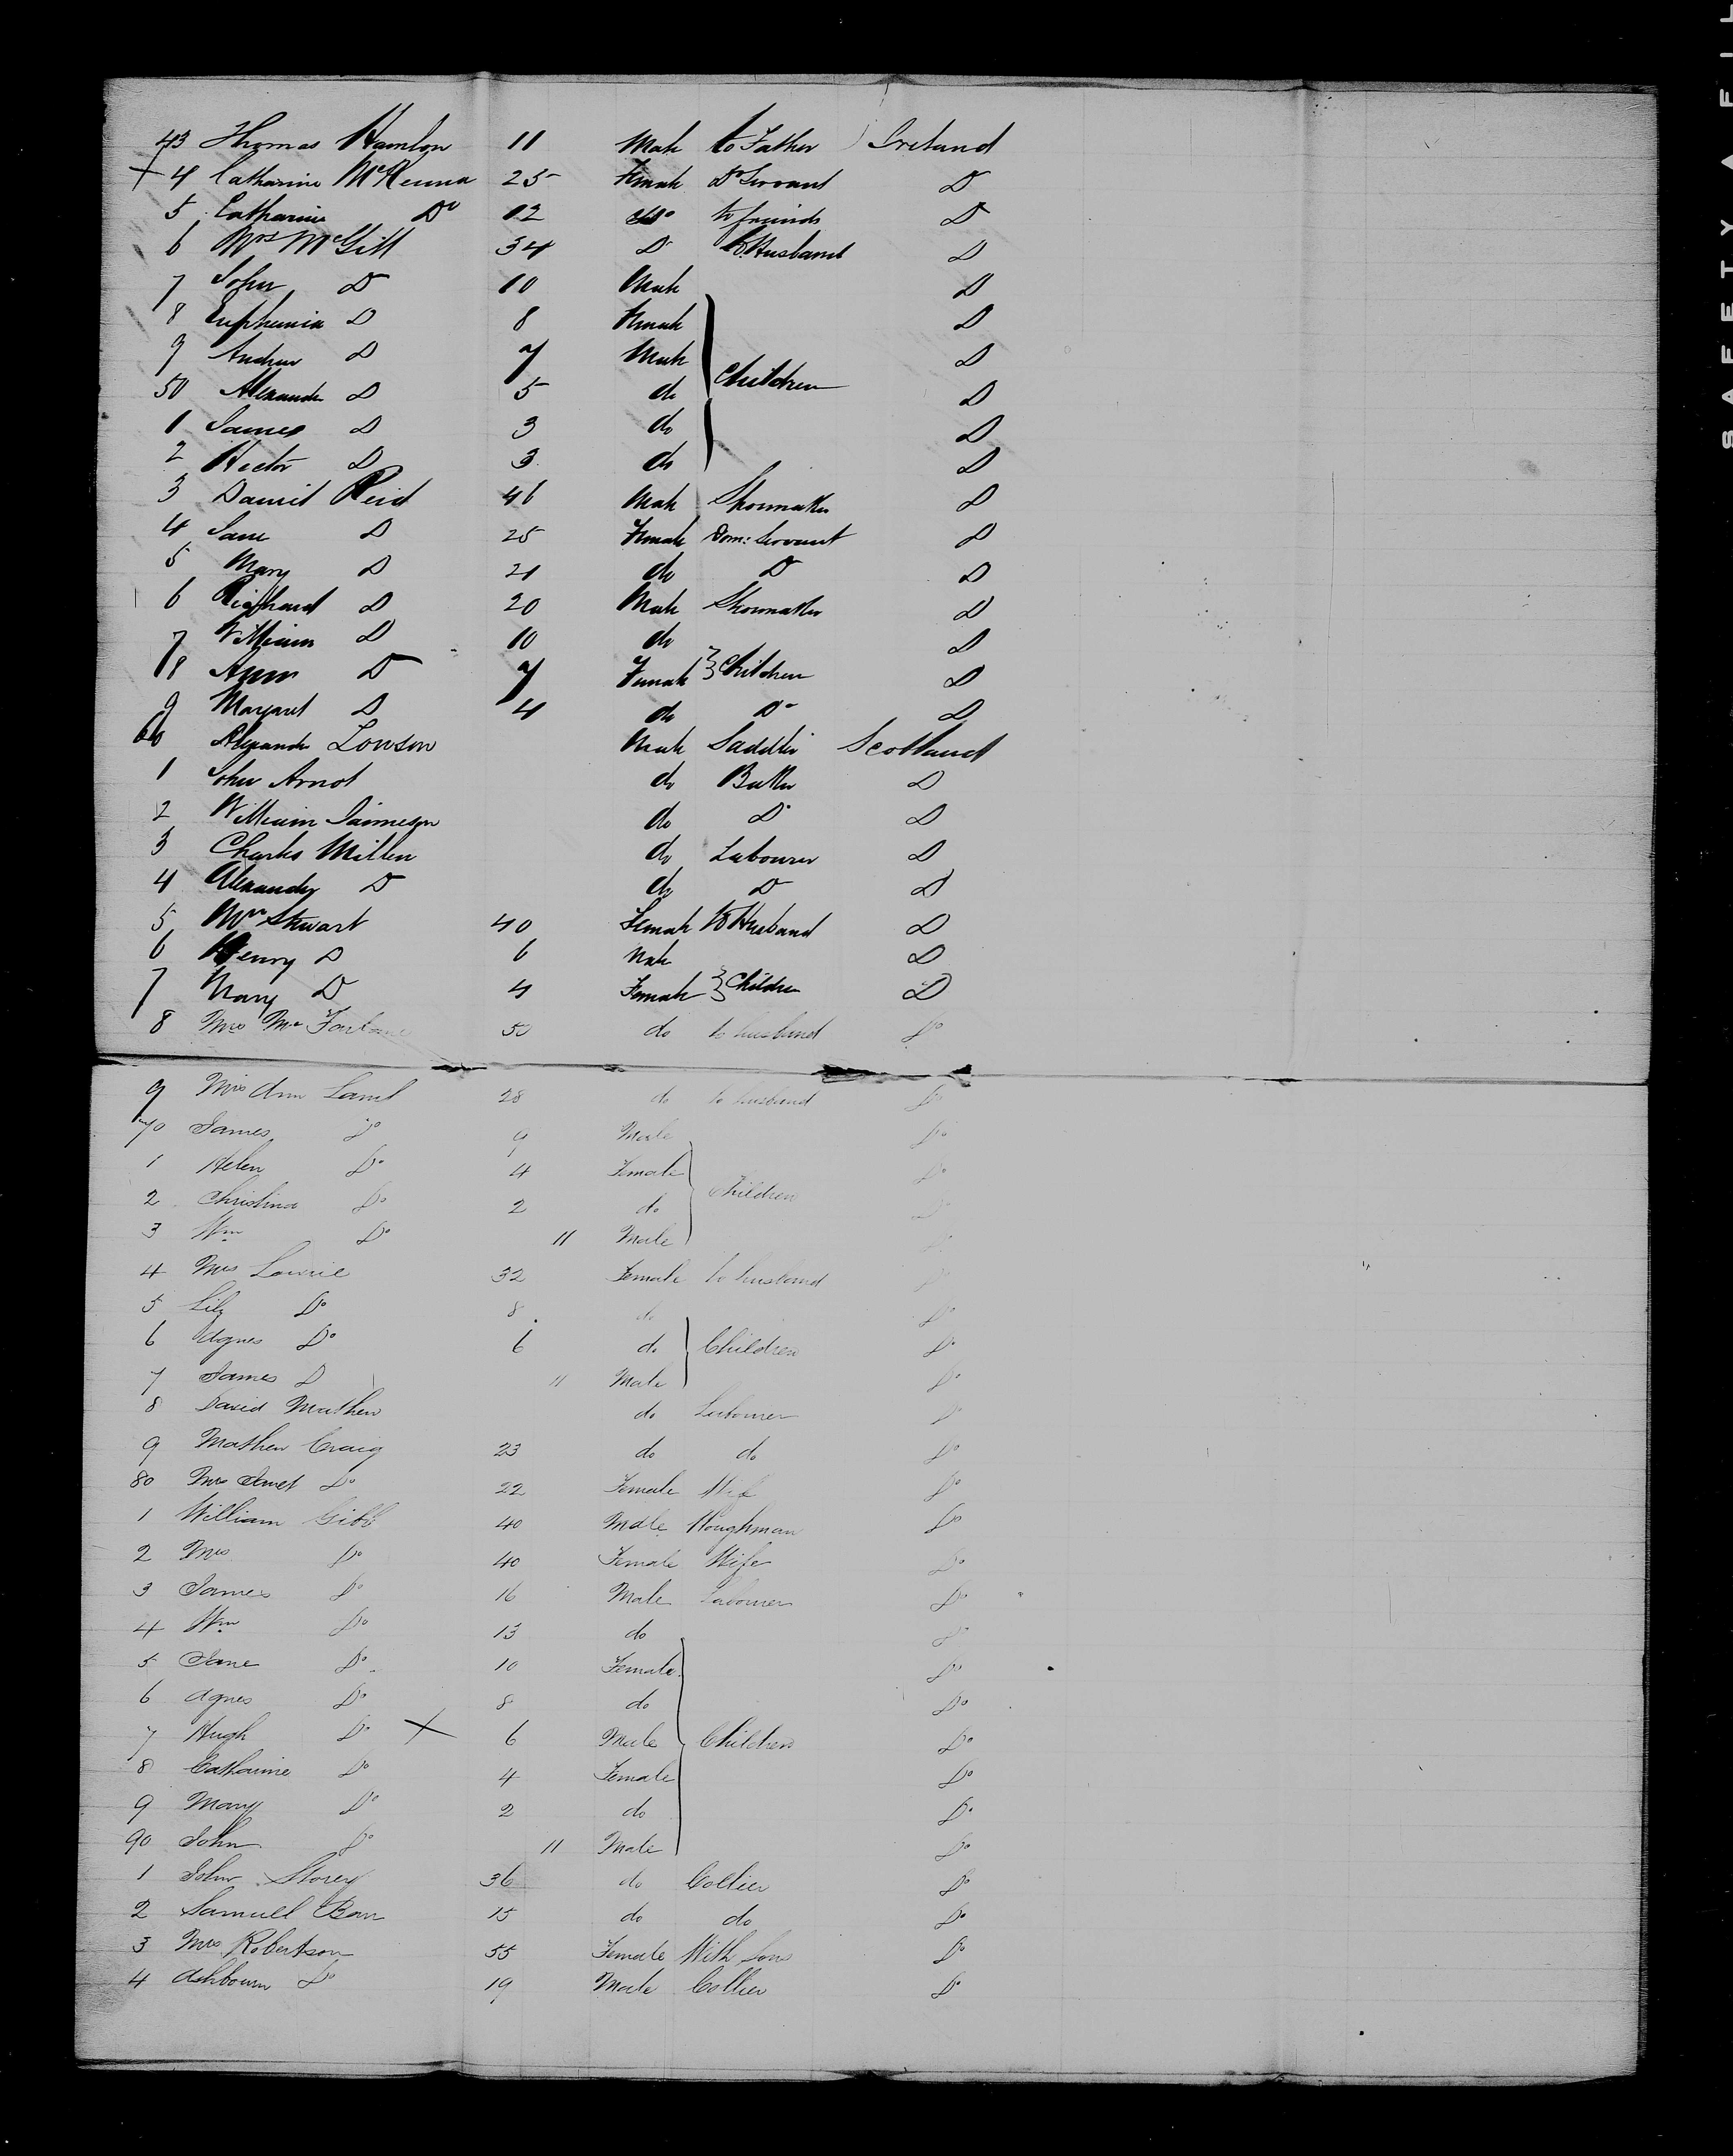 SAFETY FIL
43 Thomas Hamlon 11 Male to Father Ireland
+ 4 Catharine McKenna 25 Female Do Servant Do
5 Catharine Do 12 Do to friends Do
6 Mrs McGill 34 Do to Husband Do
7 John Do 10 Male Do
8 Euphemia Do 8 Female Do
9 Andrew Do 7 Male Do
50 Alexander Do 5 do Children Do
1 James Do 3 do Do
2 Hector Do 3 do Do
3 David Reid 46 Male Shoemaker Do
4 Jane Do 25 Female Dom: Servant Do
5 Mary Do 21 do Do Do
6 Richard Do 20 Male Shoemaker Do
7 William Do 10 do Do
8 Ann Do 7 Female Children Do
9 Margaret Do 4 do Do Do
60 Alexander Lowson Male Saddler Scotland
1 John Arnot do Baker Do
2 William Jaimeson do Do Do
3 Charles Miller do Labourer Do
4 Alexander Do do Do Do
5 Mrs Stewart 40 Female to Husband Do
6 Henry Do 6 Male Do
7 Mary Do 4 Female Children Do
8 Mrs McFarlane 50 do to husband Do
9 Mrs Ann Lamb 28 do to husband Do
70 James Do 9 Male Do
1 Helen Do 4 Female Do
2 Christina Do 2 do Children Do
3 Wm Do 11 Male Do
4 Mrs Lowrie 32 Female to husband Do
5 Lily Do 8 do Do
6 Agnes Do 6 do Children Do
7 James D 11 Male Do
8 David Mathew do Labourer Do
9 Mathew Craig 23 do do Do
80 Mrs Janet Do 22 Female Wife Do
1 William Gibb 40 Male Ploughman Do
2 Mrs Do 40 Female Wife Do
3 James Do 16 Male Labourer Do
4 Wm Do 13 do Do
5 Jane Do 10 Female Do
6 Agnes Do 8 do Do
7 Hugh Do + 6 Male Children Do
8 Catharine Do 4 Female Do
9 Mary Do 2 do Do
90 John Do 11 Male Do
1 John Storey 36 do Collier Do
2 Samuell Barr 15 do do Do
3 Mrs Robertson 55 Female With Sons Do
4 Ashbourn Do 19 Male Collier Do